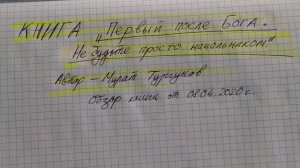 КНИГА „Первый после Бога.
Не будьте просто начальником."
Автор – Мурат Тургунов
Обзор книги от 08.04.2020г.